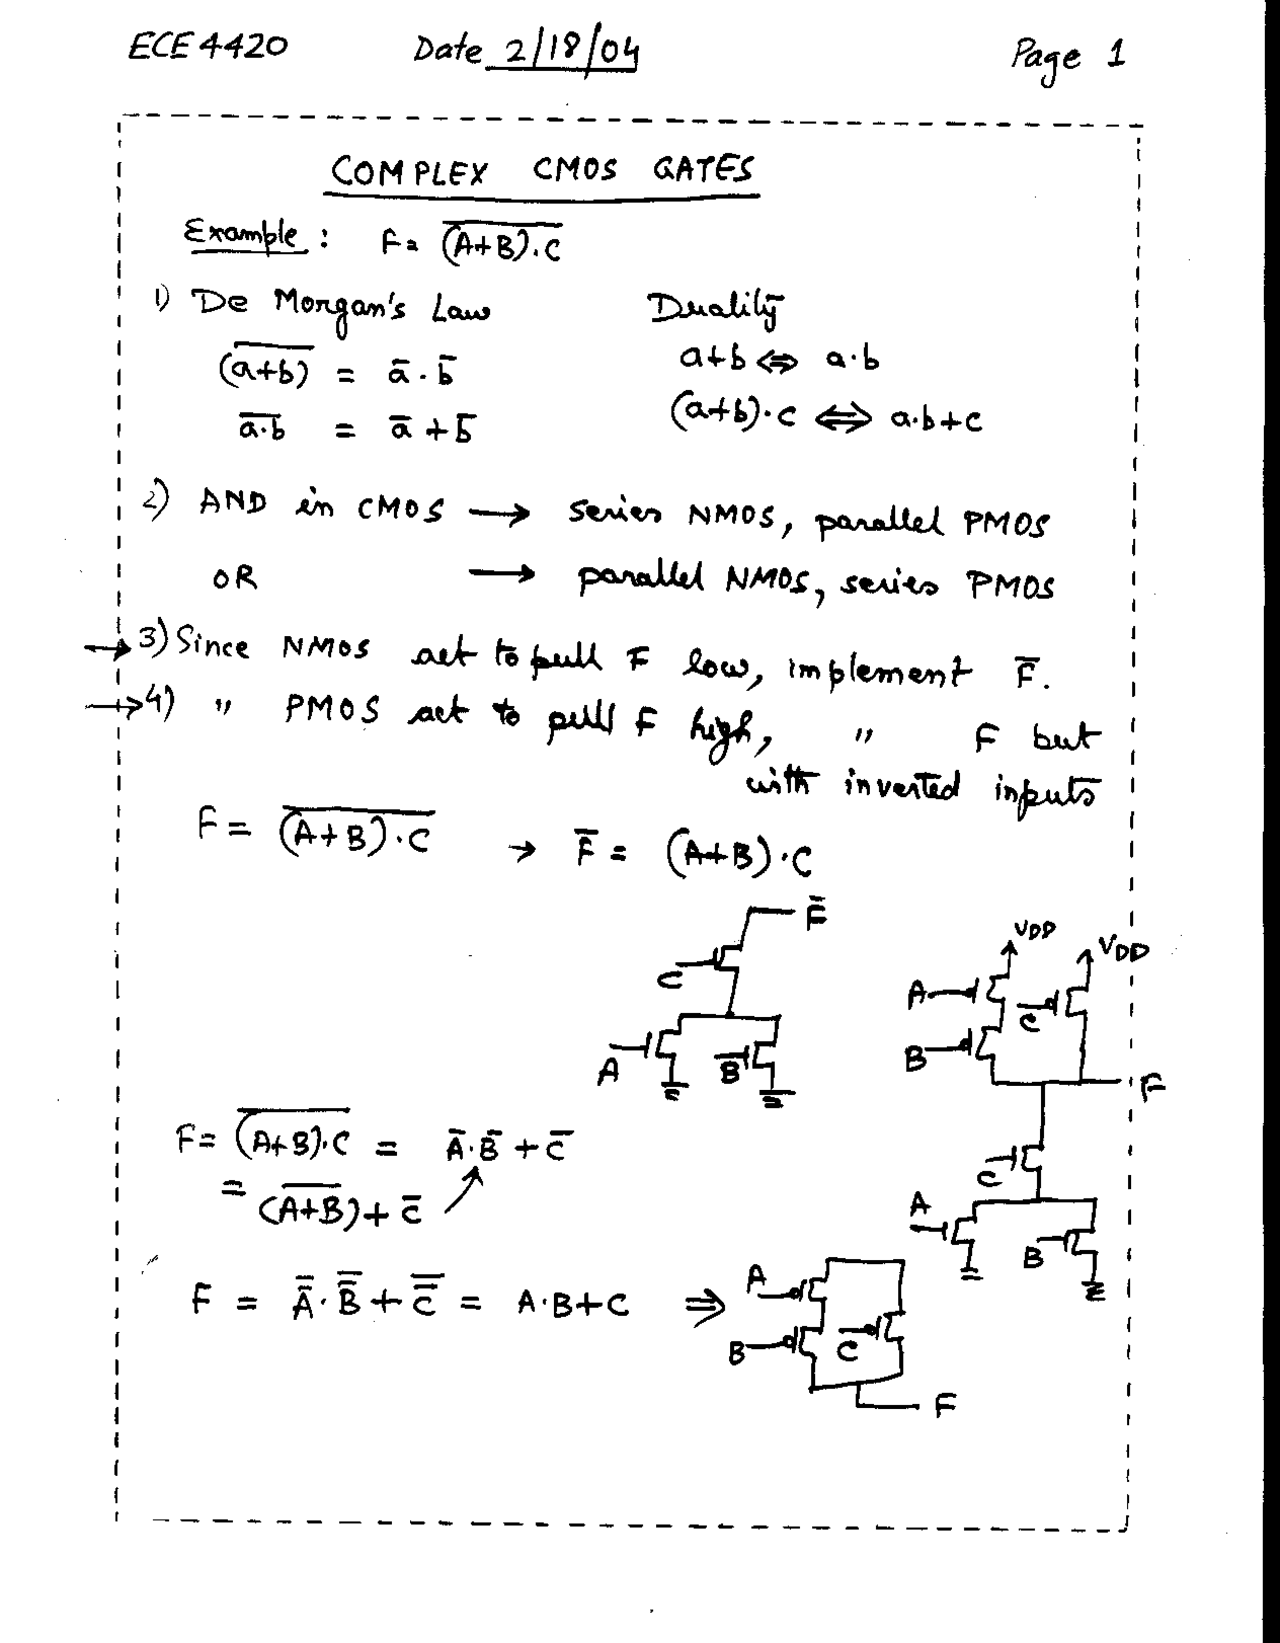 ECE 4420 Date 2/18/04 Page 1
COMPLEX CMOS GATES
Example : F = \overline{(A+B).C}
1) De Morgan's Law Duality
\overline{(a+b)} = ā . b̄ a+b ⇔ a.b
\overline{a.b} = ā + b̄ (a+b).c ⇔ a.b+c
2) AND in CMOS → series NMOS, parallel PMOS
OR → parallel NMOS, series PMOS
→ 3) Since NMOS act to pull F low, implement F̄.
→ 4) " PMOS act to pull F high, " F but
with inverted inputs
F = \overline{(A+B).C} → F̄ = (A+B).C
F̄
C
A
B
VDD
VDD
A
C
B
F
C
A
B
F = \overline{(A+B).C} = Ā.B̄ + C̄
= (\overline{A+B}) + C̄
F = \overline{\overline{A}}.\overline{\overline{B}} + \overline{\overline{C}} = A.B+C ⇒
A
B
C
F